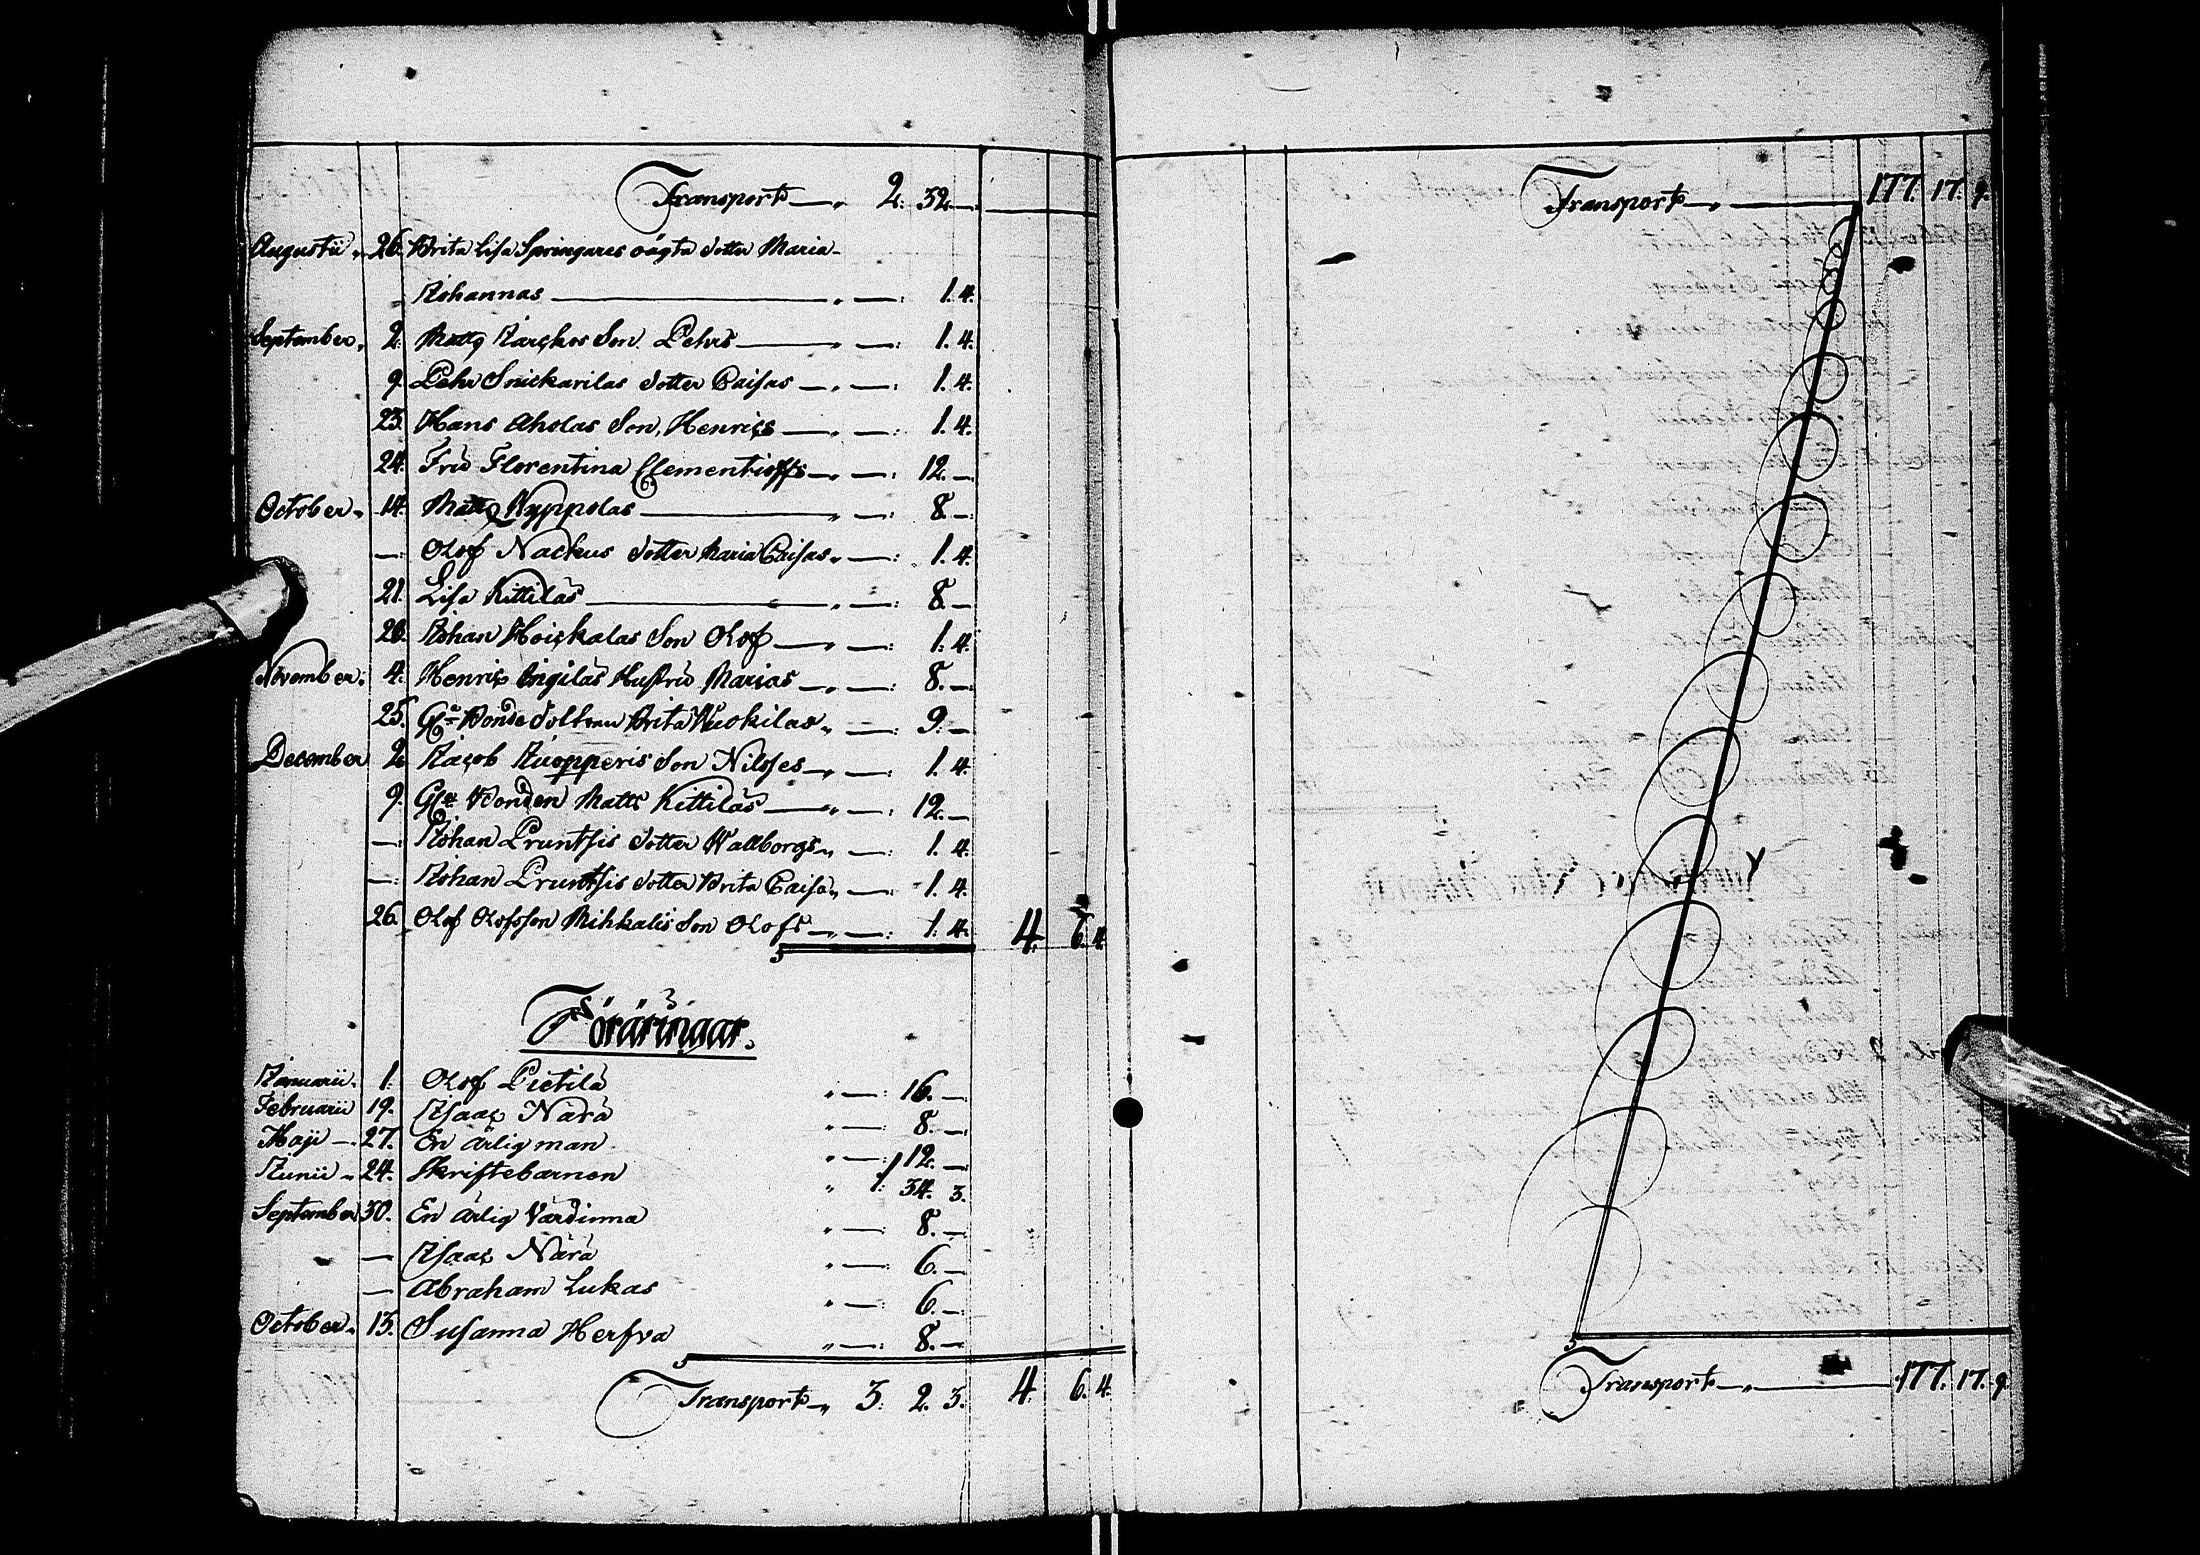 Transport — „ 2. 32. —
Augustii „ 26. Brita Lisa Springares oägta dotter Maria
Johannas — „ —: 1. 4.
September, 2. Matts Karckos Son Pehrs — „ —: 1. 4.
9. Pehr Snickarilas dotter Caisas — „ —: 1. 4.
23. Hans Aholas Son, Henrics — „ —: 1. 4.
24. Fru Florentina Clementioffs — „ —: 12. —
October „ 14. Matts Kyppolas — „ —: 8. —
—: Olof Nackus dotter Maria Caisas „ —: 1. 4.
21. Lisa Kittiläs — „ —: 8. —
28. Johan Hoickalas Son Olof — „ —: 1. 4.
November, 4. Henric Ingiläs Hustru Marias — „ —: 8. —
25. Gl: Bonde dottren Brita Kuokilas „ —: 9. —
December 2. Jacob Juopperis Son Nilsses — „ —: 1. 4.
9. Gle Bonden Matts Kittiläs — „ —: 12. —
—: Johan Pruntsis dotter Wallborgs „ —: 1. 4.
—: Johan Pruntsis dotter Brita Caisa „ —: 1. 4.
26. Olof Olofsson Mihkalis Son Olofs — „ —: 1. 4. 4. 6. 4.
Föräringar.
Januarii „ 1. Olof Pietilä „ —: 16. —
Februarii 19. Isaac Närä „ —: 8. —
Maji — 27. En ärlig man „ —: 12. —
Junii „ 24. Skriftebarnen „ 1: 34. 3.
September 30. En ärlig Värdinna „ —: 8. —
— Isaac Närä „ —: 6. —
— Abraham Lukas „ —: 6. —
October „ 15. Susanna Herfva „ —: 8. —
Transport „ 3. 2. 3. 4. 6. 4.
Transport — „ — 177. 17. 9.
Transport — „ — 177. 17. 9.